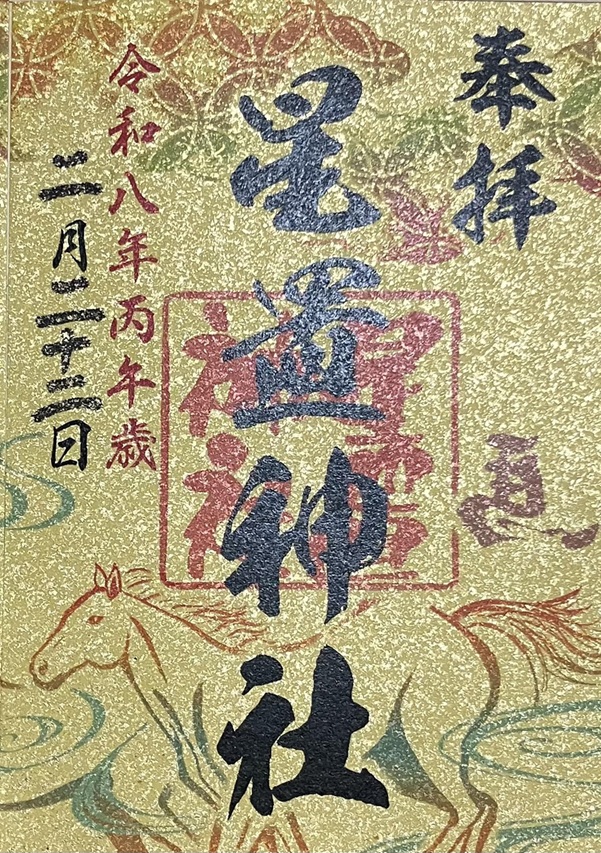 奉拝
星置神社
星置
神社
令和八年丙午歳
二月二十二日